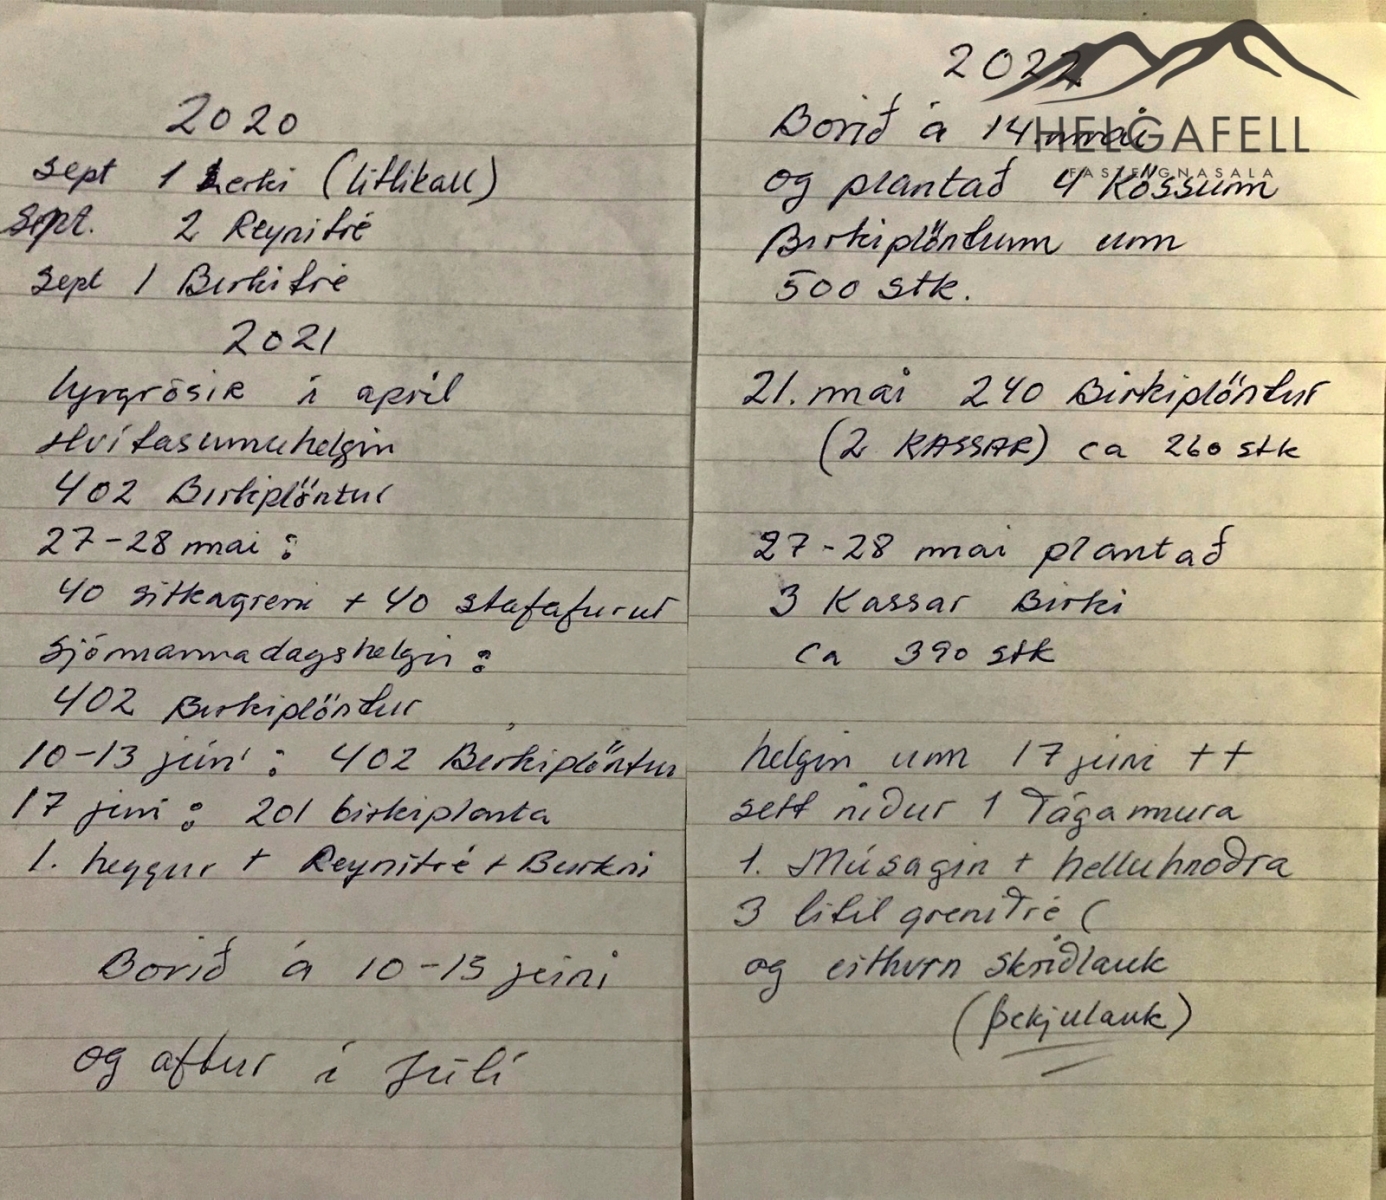 2020
Sept 1 Lerki (Litlikall)
Sept. 2 Reynitré
Sept 1 Birkitré
2021
Lyngrósir í apríl
Hvítasunnuhelgin
402 Birkiplöntur
27-28 mai :
40 sitkagreni + 40 stafafurur
Sjómannadagshelgin :
402 Birkiplöntur
10-13 júní : 402 Birkiplöntur
17 júní : 201 birkiplanta
1. heggur + Reynitré + Burkni
Borið á 10-13 júní
og aftur í Júlí
2022
Borið á 14 mai
og plantað 4 Kössum
Birkiplöntum um
500 stk.
21. mai 240 Birkiplöntur
(2 KASSAR) ca 260 stk
27-28 mai plantað
3 Kassar Birki
ca 390 stk
helgin um 17 júni ++
sett niður 1 Tágamura
1. Músagin + helluhnoðra
3 litil grenitré (
og eithvrn Skriðlauk
(Þekjulauk)
HELGAFELL
FASTEIGNASALA